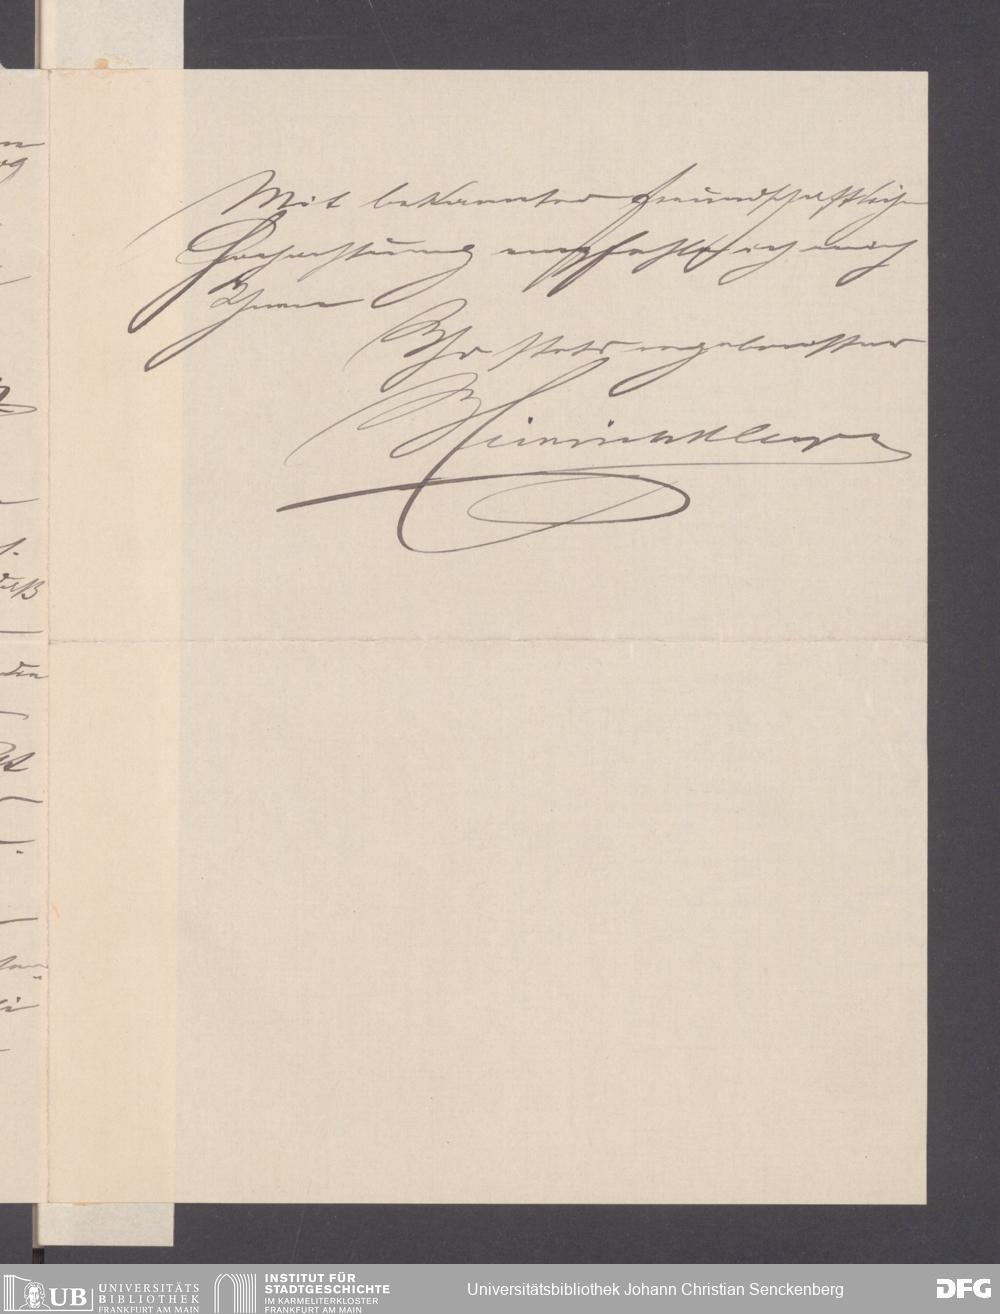 Mit bekannter freundschaftlicher
Hochachtung empfehle ich mich
Ihnen
Ihr stets ergebenster
Heinrich
UB UNIVERSITÄTS
BIBLIOTHEK
FRANKFURT AM MAIN
INSTITUT FÜR
STADTGESCHICHTE
IM KARMELITERKLOSTER
FRANKFURT AM MAIN
Universitätsbibliothek Johann Christian Senckenberg
DFG